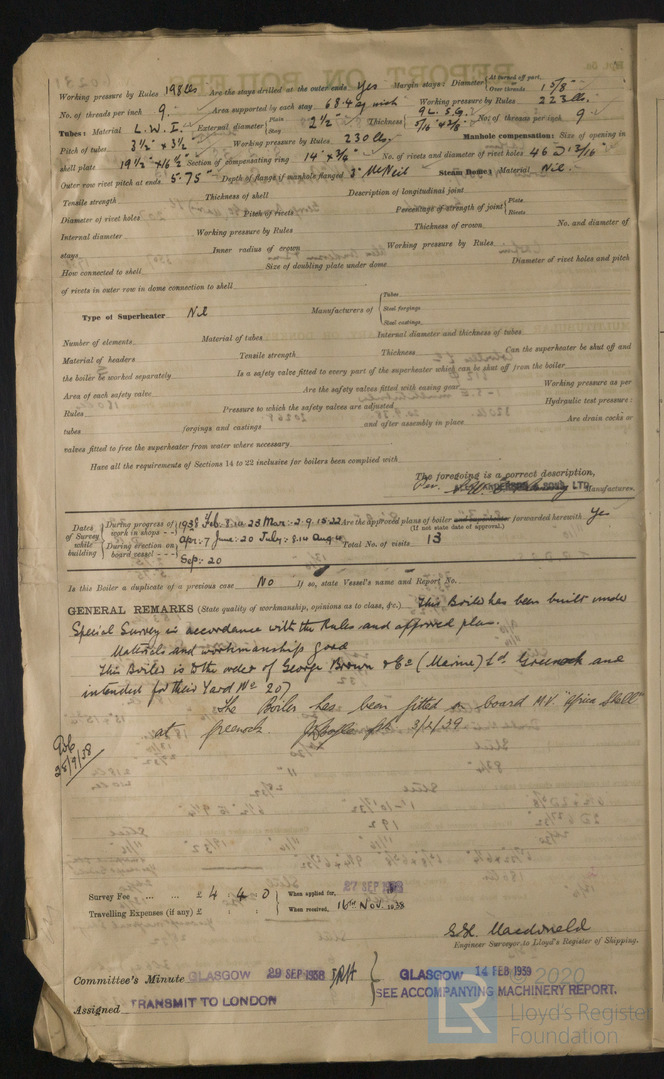 Working pressure by Rules 198 lbs Are the stays drilled at the outer ends Yes Margin stays: Diameter { At turned off part, Over threads 1 5/8"
No. of threads per inch 9. Area supported by each stay 68.4 Working pressure by Rules 223 lbs.
Tubes: Material L.W.I. External diameter { Plain Stay 2½" Thickness { 9 L.S.G. 5/16" No. of threads per inch 9
Pitch of tubes 3½" x 3½" Working pressure by Rules 230 lbs. Manhole compensation: Size of opening in
shell plate 19½" x 16½" Section of compensating ring 14" x ¾" No. of rivets and diameter of rivet holes 46 13/16"
Outer row rivet pitch at ends 5.75" Depth of flange if manhole flanged 3" McNeil Steam Dome: Material Nil.
Tensile strength Thickness of shell Description of longitudinal joint
Diameter of rivet holes Pitch of rivets Percentage of strength of joint { Plate Rivets
Internal diameter Working pressure by Rules Thickness of crown No. and diameter of
stays Inner radius of crown Working pressure by Rules
How connected to shell Size of doubling plate under dome Diameter of rivet holes and pitch
of rivets in outer row in dome connection to shell
Type of Superheater Nil Manufacturers of { Tubes Steel forgings Steel castings
Number of elements Material of tubes Internal diameter and thickness of tubes
Material of headers Tensile strength Thickness Can the superheater be shut off and
the boiler be worked separately Is a safety valve fitted to every part of the superheater which can be shut off from the boiler
Area of each safety valve Are the safety valves fitted with easing gear Working pressure as per
Rules Pressure to which the safety valves are adjusted Hydraulic test pressure:
tubes forgings and castings and after assembly in place Are drain cocks or
valves fitted to free the superheater from water where necessary
Have all the requirements of Sections 14 to 22 inclusive for boilers been complied with
The foregoing is a correct description,
Per. ANDERSON & SONS, LTD. Manufacturer.
Dates of Survey while building { During progress of work in shops - - 1938 Feb: 8.10.23 Mar:- 2.9.15.22 Are the approved plans of boiler and superheater forwarded herewith Yes
(If not state date of approval.)
During erection on board vessel - - - Apr:- 7 June:- 20 July:- 8.10 Aug:- Total No. of visits 13
Sep:- 20
Is this Boiler a duplicate of a previous case No If so, state Vessel's name and Report No.
GENERAL REMARKS (State quality of workmanship, opinions as to class, &c.) This Boiler has been built under
Special Survey in accordance with the Rules and approved plan.
Materials and workmanship good
This Boiler is to the order of George Brown & Co (Marine) Ltd Greenock and
intended for their Yard No 207
The Boiler has been fitted on board M.V. "Africa Shell"
at Greenock 3/2/39
28/9/38
Survey Fee ... ... £ 4 : 4 : 0 { When applied for, 27 SEP 1938
Travelling Expenses (if any) £ : : When received, 16th Nov. 1938
Macdonald
Engineer Surveyor to Lloyd's Register of Shipping.
Committee's Minute GLASGOW 29 SEP 1938 } GLASGOW 14 FEB 1939
Assigned TRANSMIT TO LONDON SEE ACCOMPANYING MACHINERY REPORT.
2020
LR Lloyd's Register
Foundation